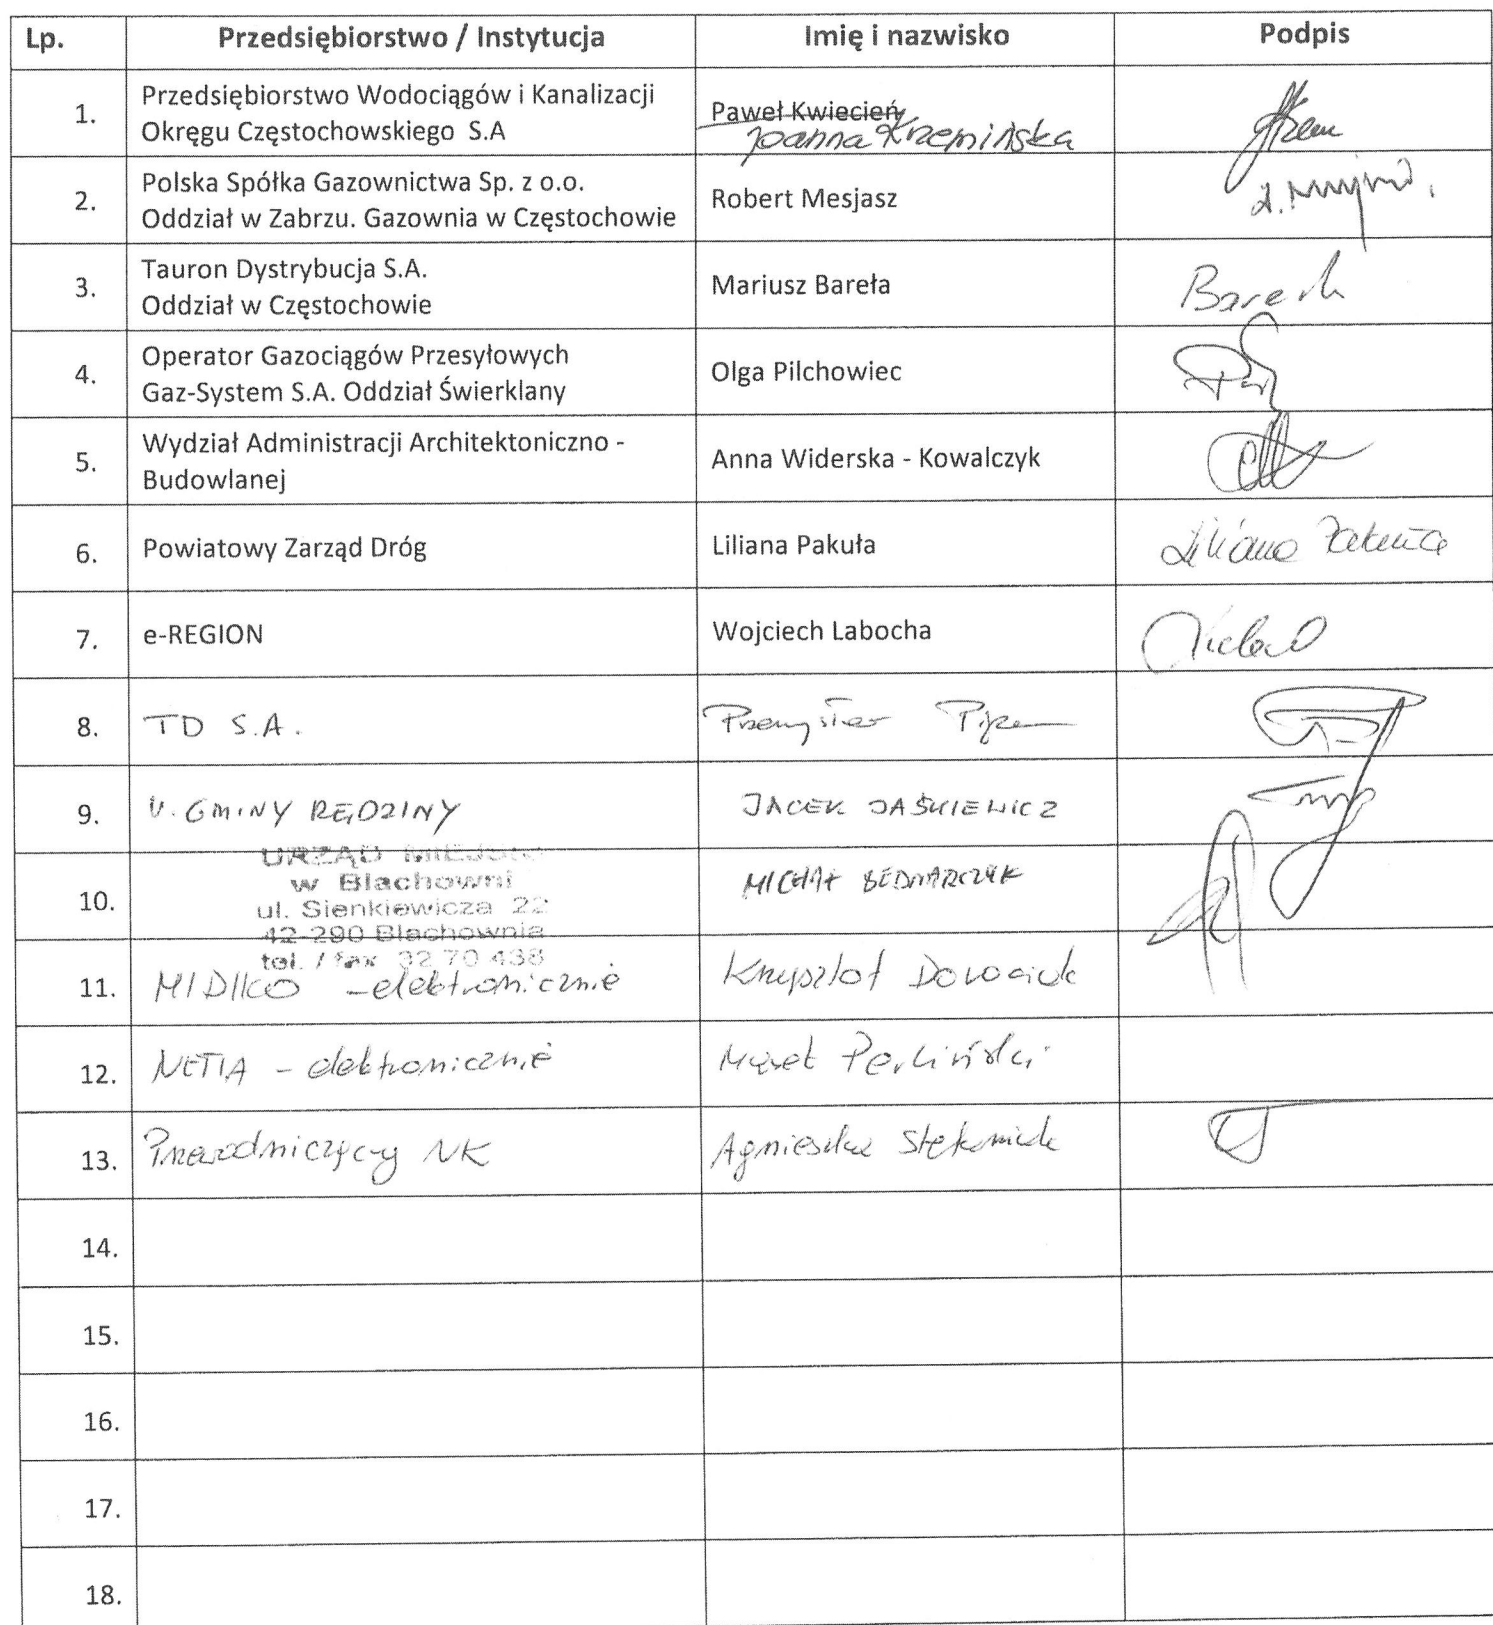 Lp. Przedsiębiorstwo / Instytucja Imię i nazwisko Podpis
1. Przedsiębiorstwo Wodociągów i Kanalizacji
Okręgu Częstochowskiego S.A
Paweł Kwiecień
Joanna Krzemińska
2. Polska Spółka Gazownictwa Sp. z o.o.
Oddział w Zabrzu. Gazownia w Częstochowie
Robert Mesjasz
3. Tauron Dystrybucja S.A.
Oddział w Częstochowie
Mariusz Bareła
4. Operator Gazociągów Przesyłowych
Gaz-System S.A. Oddział Świerklany
Olga Pilchowiec
5. Wydział Administracji Architektoniczno -
Budowlanej
Anna Widerska - Kowalczyk
6. Powiatowy Zarząd Dróg Liliana Pakuła Liliana Pakuła
7. e-REGION Wojciech Labocha
8. TD S.A. Przemysław
9. U. GMINY RĘDZINY JACEK JAŚKIEWICZ
10. URZĄD MIEJSKI
w Blachowni
ul. Sienkiewicza 22
42-290 Blachownia
tel. / fax 32 70 438
MICHAŁ BEDNARCZYK
11. MIDIKO - elektronicznie Krzysztof
12. NETIA - elektronicznie Marek Perliński
13. Przewodniczący NK Agnieszka
14.
15.
16.
17.
18.